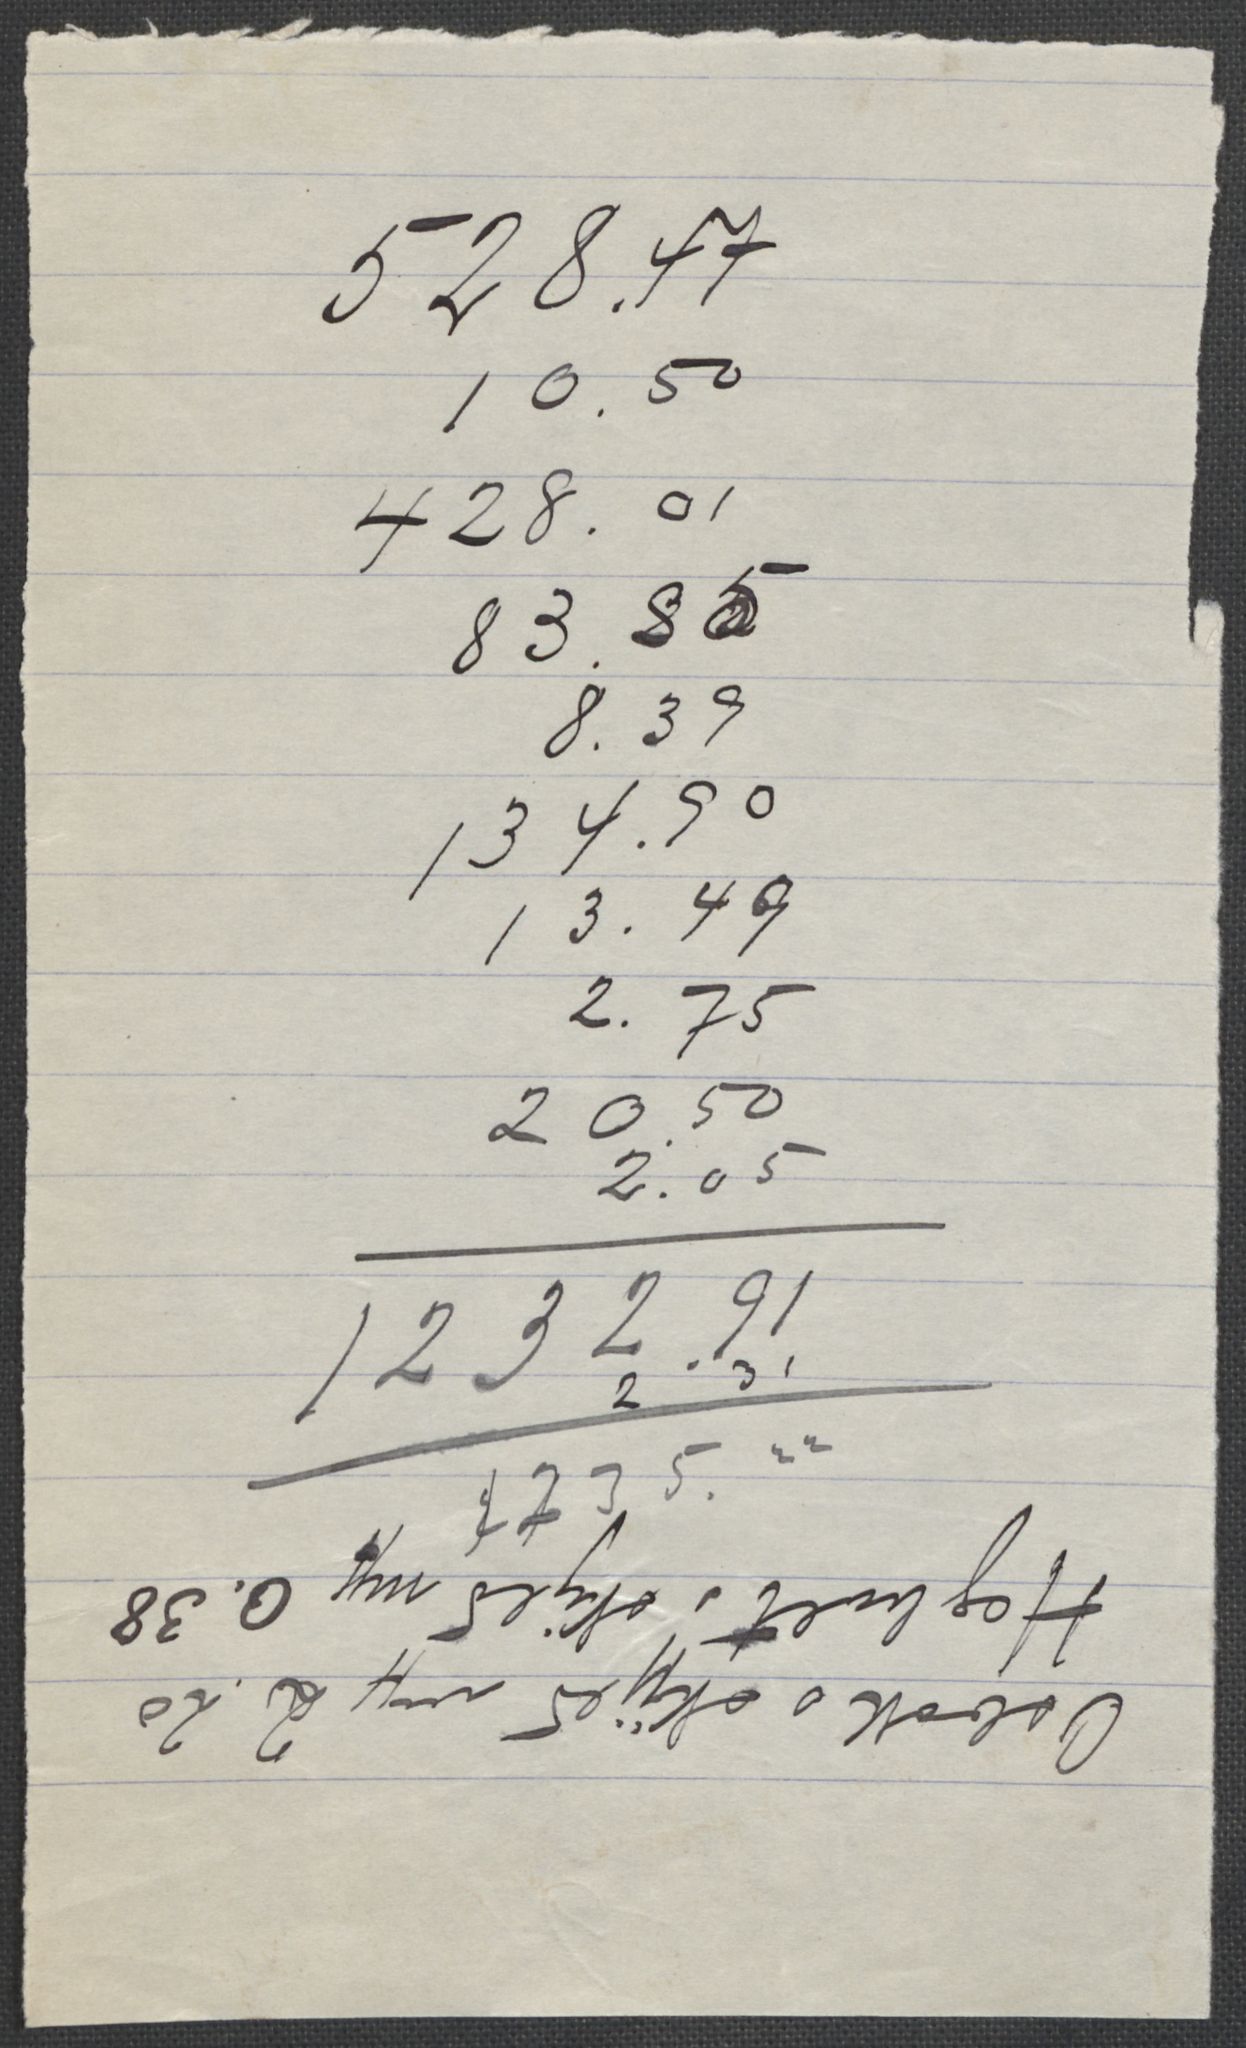 528.47
10.50
428.01
83.85
8.39
134.90
13.49
2.75
20.50
2.05
1232.91
2.31
1235.22
2.20
0.38